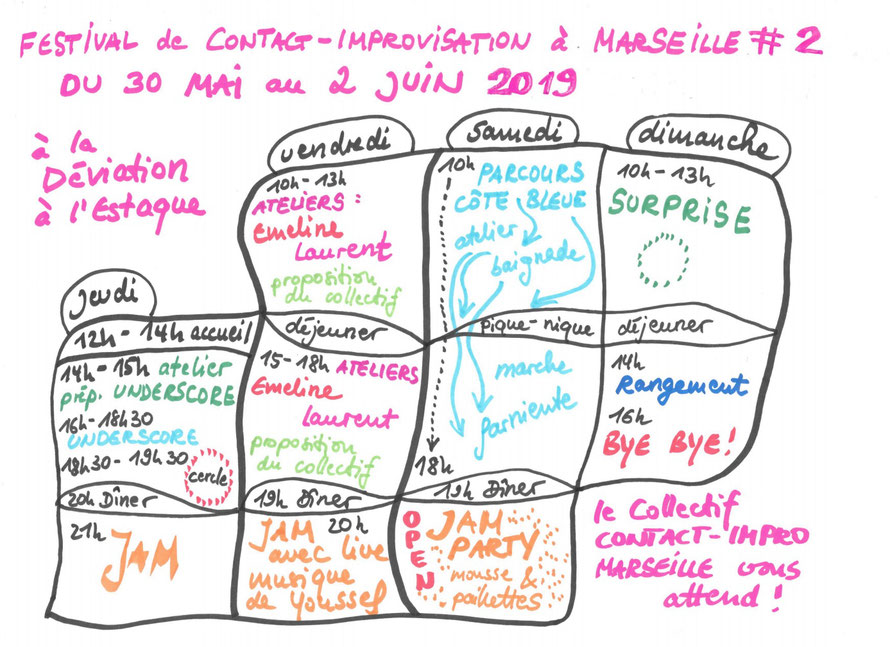 FESTIVAL de CONTACT-IMPROVISATION à MARSEILLE # 2
DU 30 MAI au 2 JUIN 2019
à la
Déviation
à l'Estaque
jeudi
12h - 14h accueil
14h - 15h atelier
prép. UNDERSCORE
16h - 18h30
UNDERSCORE
18h30 - 19h30
cercle
20h Dîner
21h
JAM
vendredi
10h - 13h
ATELIERS :
Emeline
Laurent
proposition
du collectif
déjeuner
15 - 18h ATELIERS
Emeline
Laurent
proposition
du collectif
19h Dîner
JAM 20h
avec live
musique
de Youssef
samedi
10h
PARCOURS
CÔTE BLEUE
atelier
baignade
pique-nique
marche
farniente
18h
19h Dîner
OPEN
JAM
PARTY
mousse &
paillettes
dimanche
10h - 13h
SURPRISE
déjeuner
14h
Rangement
16h
BYE BYE!
le Collectif
CONTACT-IMPRO
MARSEILLE vous
attend !